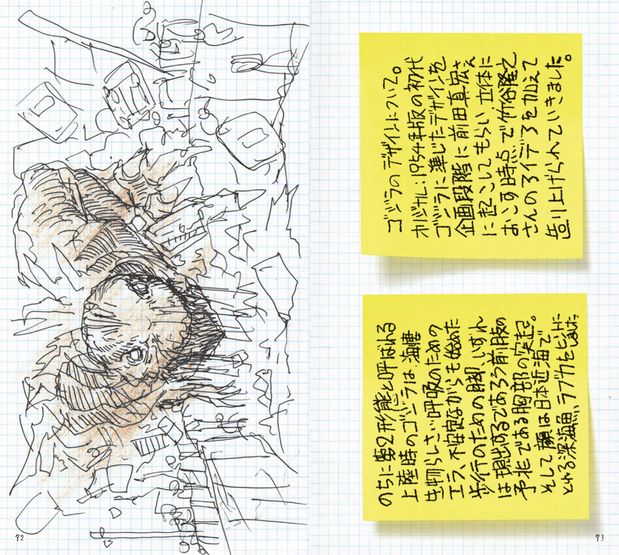 ゴジラのデザインについて。
オリジナル:1954年版の初代
ゴジラに準じたデザインを
企画段階に前田真宏さん
に起こしてもらい立体に
おこす時点で竹谷隆之
さんのアイデアを加えて
造り上げられていきました。
のちに第2形態と呼ばれる
上陸時のゴジラは、海棲
生物らしさい呼吸のための
エラ、不安定ながらも始めた
歩行のための脚、いずれ
は現出するであろう前肢の
予兆である胸部の突起。
そして顔は日本近海で
とれる深海魚ラブカをヒントにしました
92
93